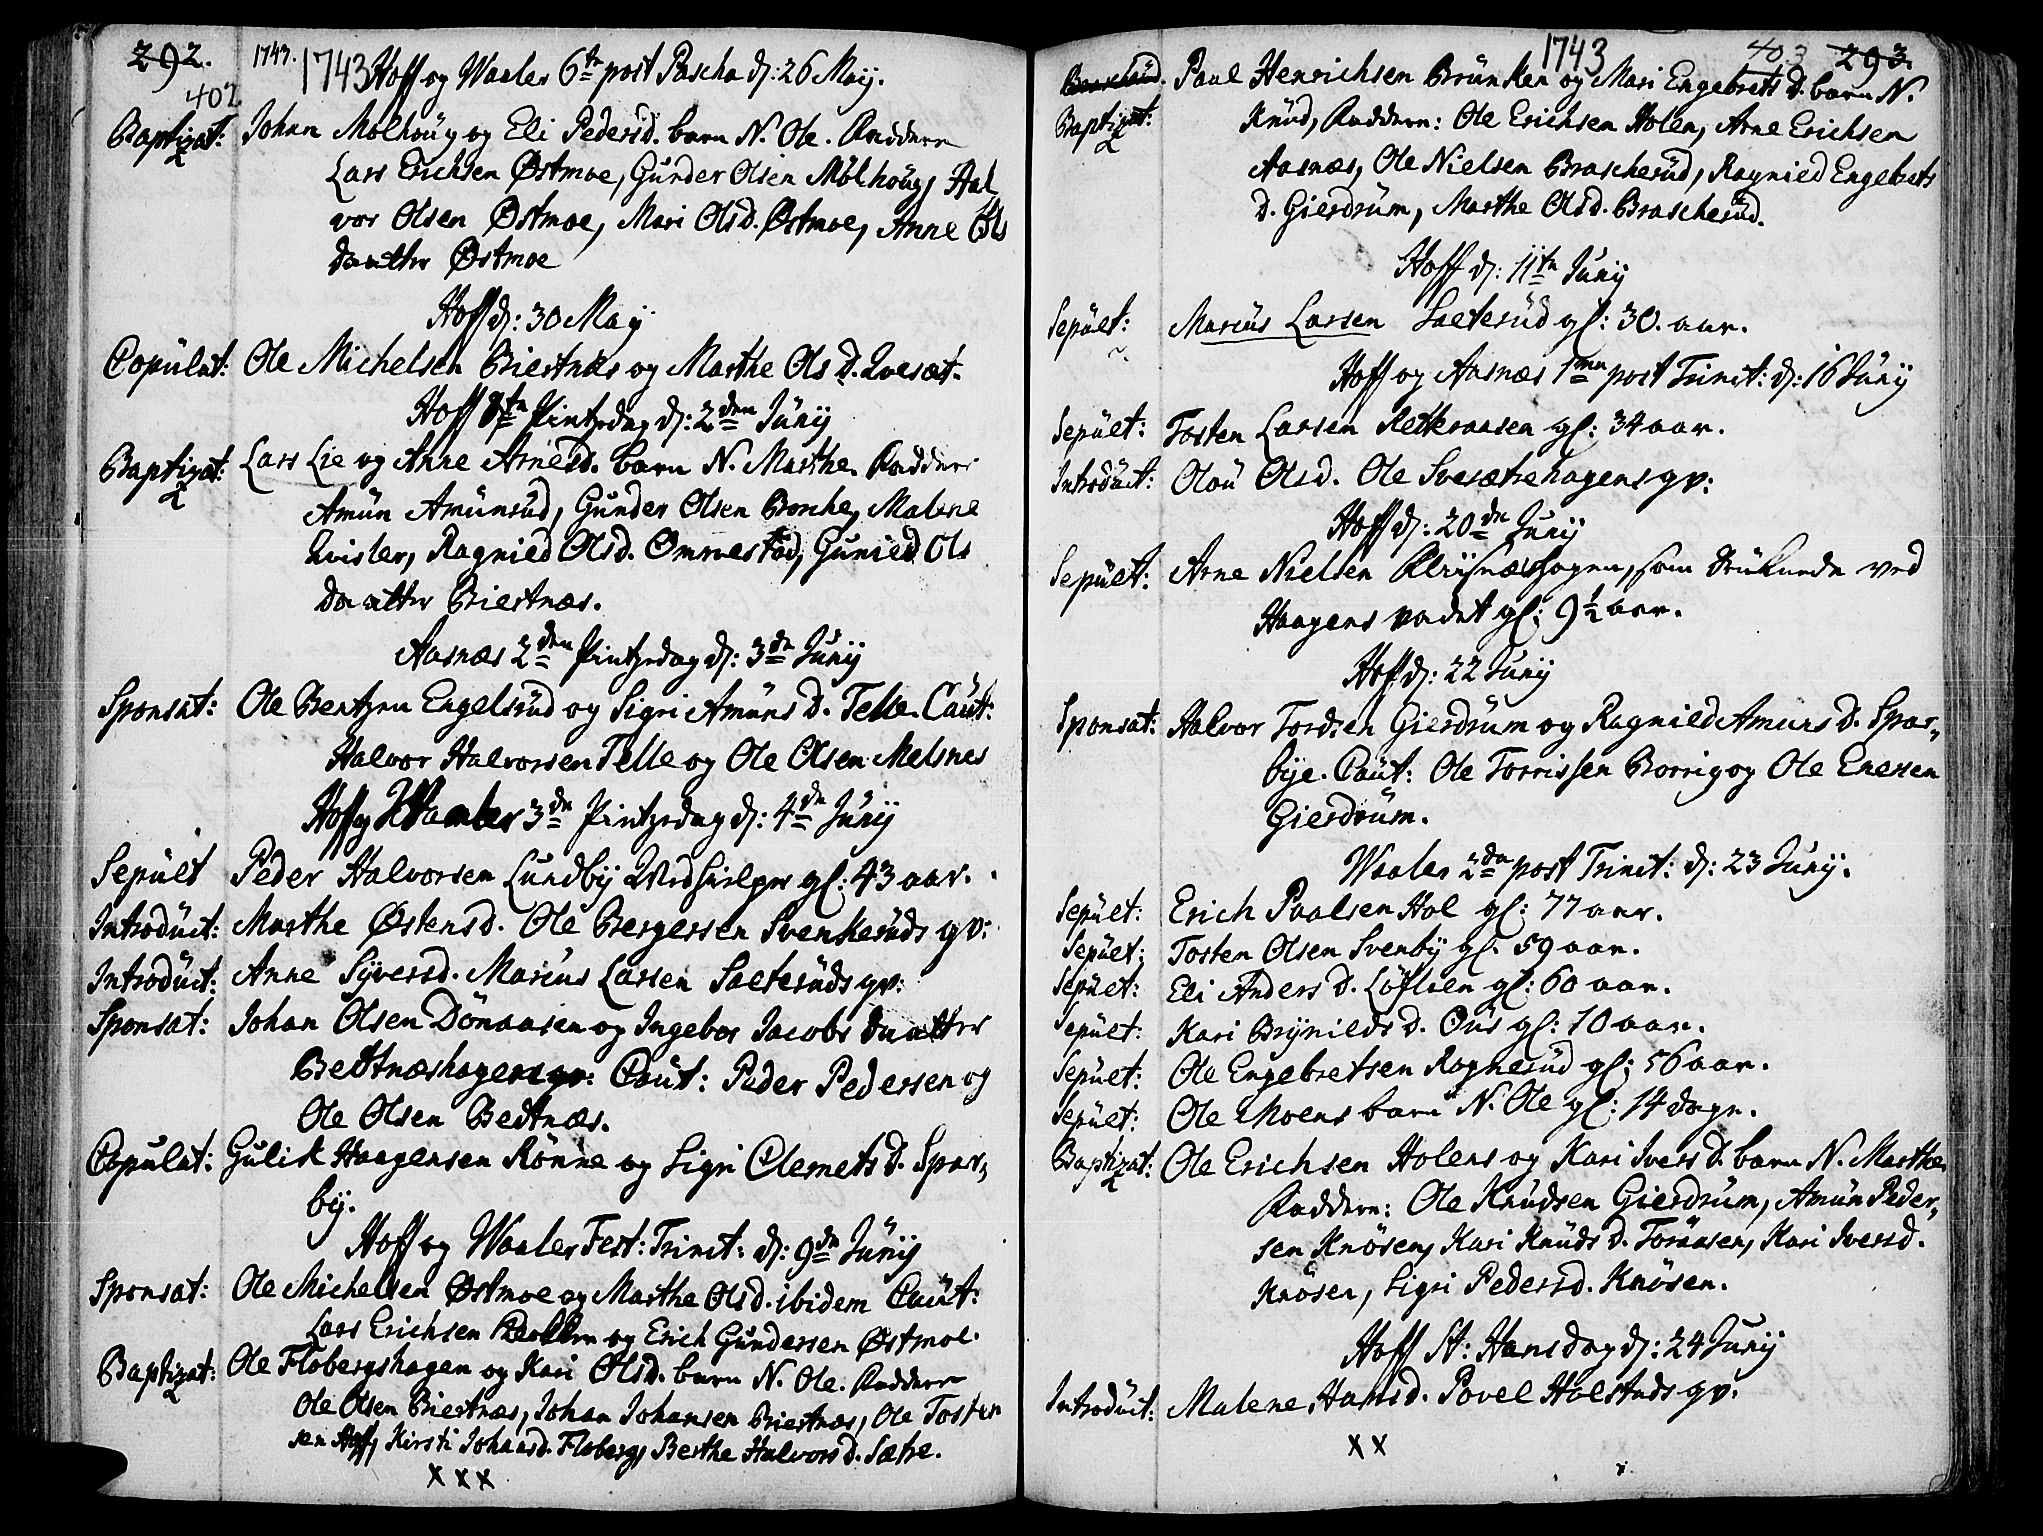 292. 1743. 1743 Hoff og Waaler 6te post Pascha d: 26 Maij.
402
Baptizat: Johan Mölhoug og Eli Pedersd. barn N. Ole. Faddere
Lars Erichsen Østmoe, Gunder Olsen Mölhoug, Hal
vor Olsen Østmoe, Mari Olsd. Østmoe, Anne Ols
daatter Østmoe
Hoff d: 30 May
Copulat: Ole Michelsen Biertnæs og Marthe Ols D. Qvesæt.
Hoff Pintzedag d: 2den Junij
Baptizat: Lars Lie og Anne Arnesd. barn N. Marthe. Faddere
Amün Amünsüd, Gunder Olsen Borche, Malene
Qvisler, Ragnild Olsd. Omnestad, Gunild Ols
daatter Biertnæs.
Aasnæs 2den Pintzedag d: 3de Junij
Sponsat: Ole Bentzen Engelsrüd og Sigri Amüns D. Telle. Caut:
Halvor Halvorsen Telle og Ole Olsen Melsnes
Hoff og Waaler 3de Pintzedag d: 4de Junij
Sepült Peder Halvorsen Lundbij gl: 43 aar.
Introdüct: Marthe Østensd. Ole Bergersen Svenkerüds gv:
Introdüct: Anne Syversd. Marius Larsen Sætesüds gv:
Sponsat: Johan Olsen Dönaasen og Ingebor Jacobs daatter
Bedtnæshagen Caut: Peder Pedersen og
Ole Olsen Bedtnæs.
Copulat: Gulik Haagensen Rønne og Sigri Clemets D. Spar„
by.
Hoff og Waaler Fest: Trinit: d: 9de Junij
Sponsat: Ole Michelsen Østmoe og Marthe Olsd. ibidem Caut:
Lars Erichsen og Erich Gundersen Østmoe.
Baptizat: Ole Flobergshagen og Kari Olsd. barn N. Ole. Faddere
Ole Olsen Biertnæs, Johan Johansen Biertnæs, Ole Tosten
sen Hoff, Kirsti Johansd. Floberg, Berthe Halvorsd. Sætre.
x x x
1743 403 293.
Paul Henrichsen Brünken og Mari Engebrets D. barn N.
Baptizat: Knüd, Faddere: Ole Erichsen Holen, Arne Erichsen
Aasnæs, Ole Nielsen Braschesüd, Ragnied Engebrets
D. Gierdrüm, Marthe Olsd. Braschesüd.
Hoff d: 11te Junij
Sepült: Marius Larsen Sætesüd gl: 30. aar.
Hoff og Aasnæs 1ma post Trinit: d: 16 Junij
Sepült: Tosten Larsen Retkraasen gl: 34 aar.
Introdüct: Oloü Olsd. Ole Svesætrehagens gv:
Hoff d: 20de Junij
Sepült: Arne Nielsen som druknede ved
Haagens vadet gl: 9½ aar.
Hoff d: 22 Junij
Sponsat: Halvor Tordsen Gierdrüm og Ragnild Amuns D. Spar„
bye. Caut: Ole Torrissen Borrig og Ole Enersen
Gierdrüm.
Waaler 2da post Trinit: d: 23 Junij.
Sepült: Erich Paalsen Hol gl: 77 aar.
Sepült: Tosten Olsen Svenby gl: 59 aar.
Sepült: Eli Anders D. Löflien gl: 60 aar.
Sepült: Kari Brynilds D. Oüs gl: 70 aar.
Sepült: Ole Engebretsen Rognerüd gl: 56 aar.
Sepült: Ole Moens barn N. Ole gl: 14 dage.
Baptizat: Ole Erichsen Holens og Kari Ivers D. barn N. Marthe
Faddere: Ole Knüdsen Gierdrüm, Amün Peder„
sen Knösen, Kari Knüds D. Töraasen, Kari Iversd.
Knösen, Sigri Pedersd. Knösen.
Hoff St: Hansdag d: 24 Junij
Introdüct: Malene Hansd. Povel Holstads gv.
x x